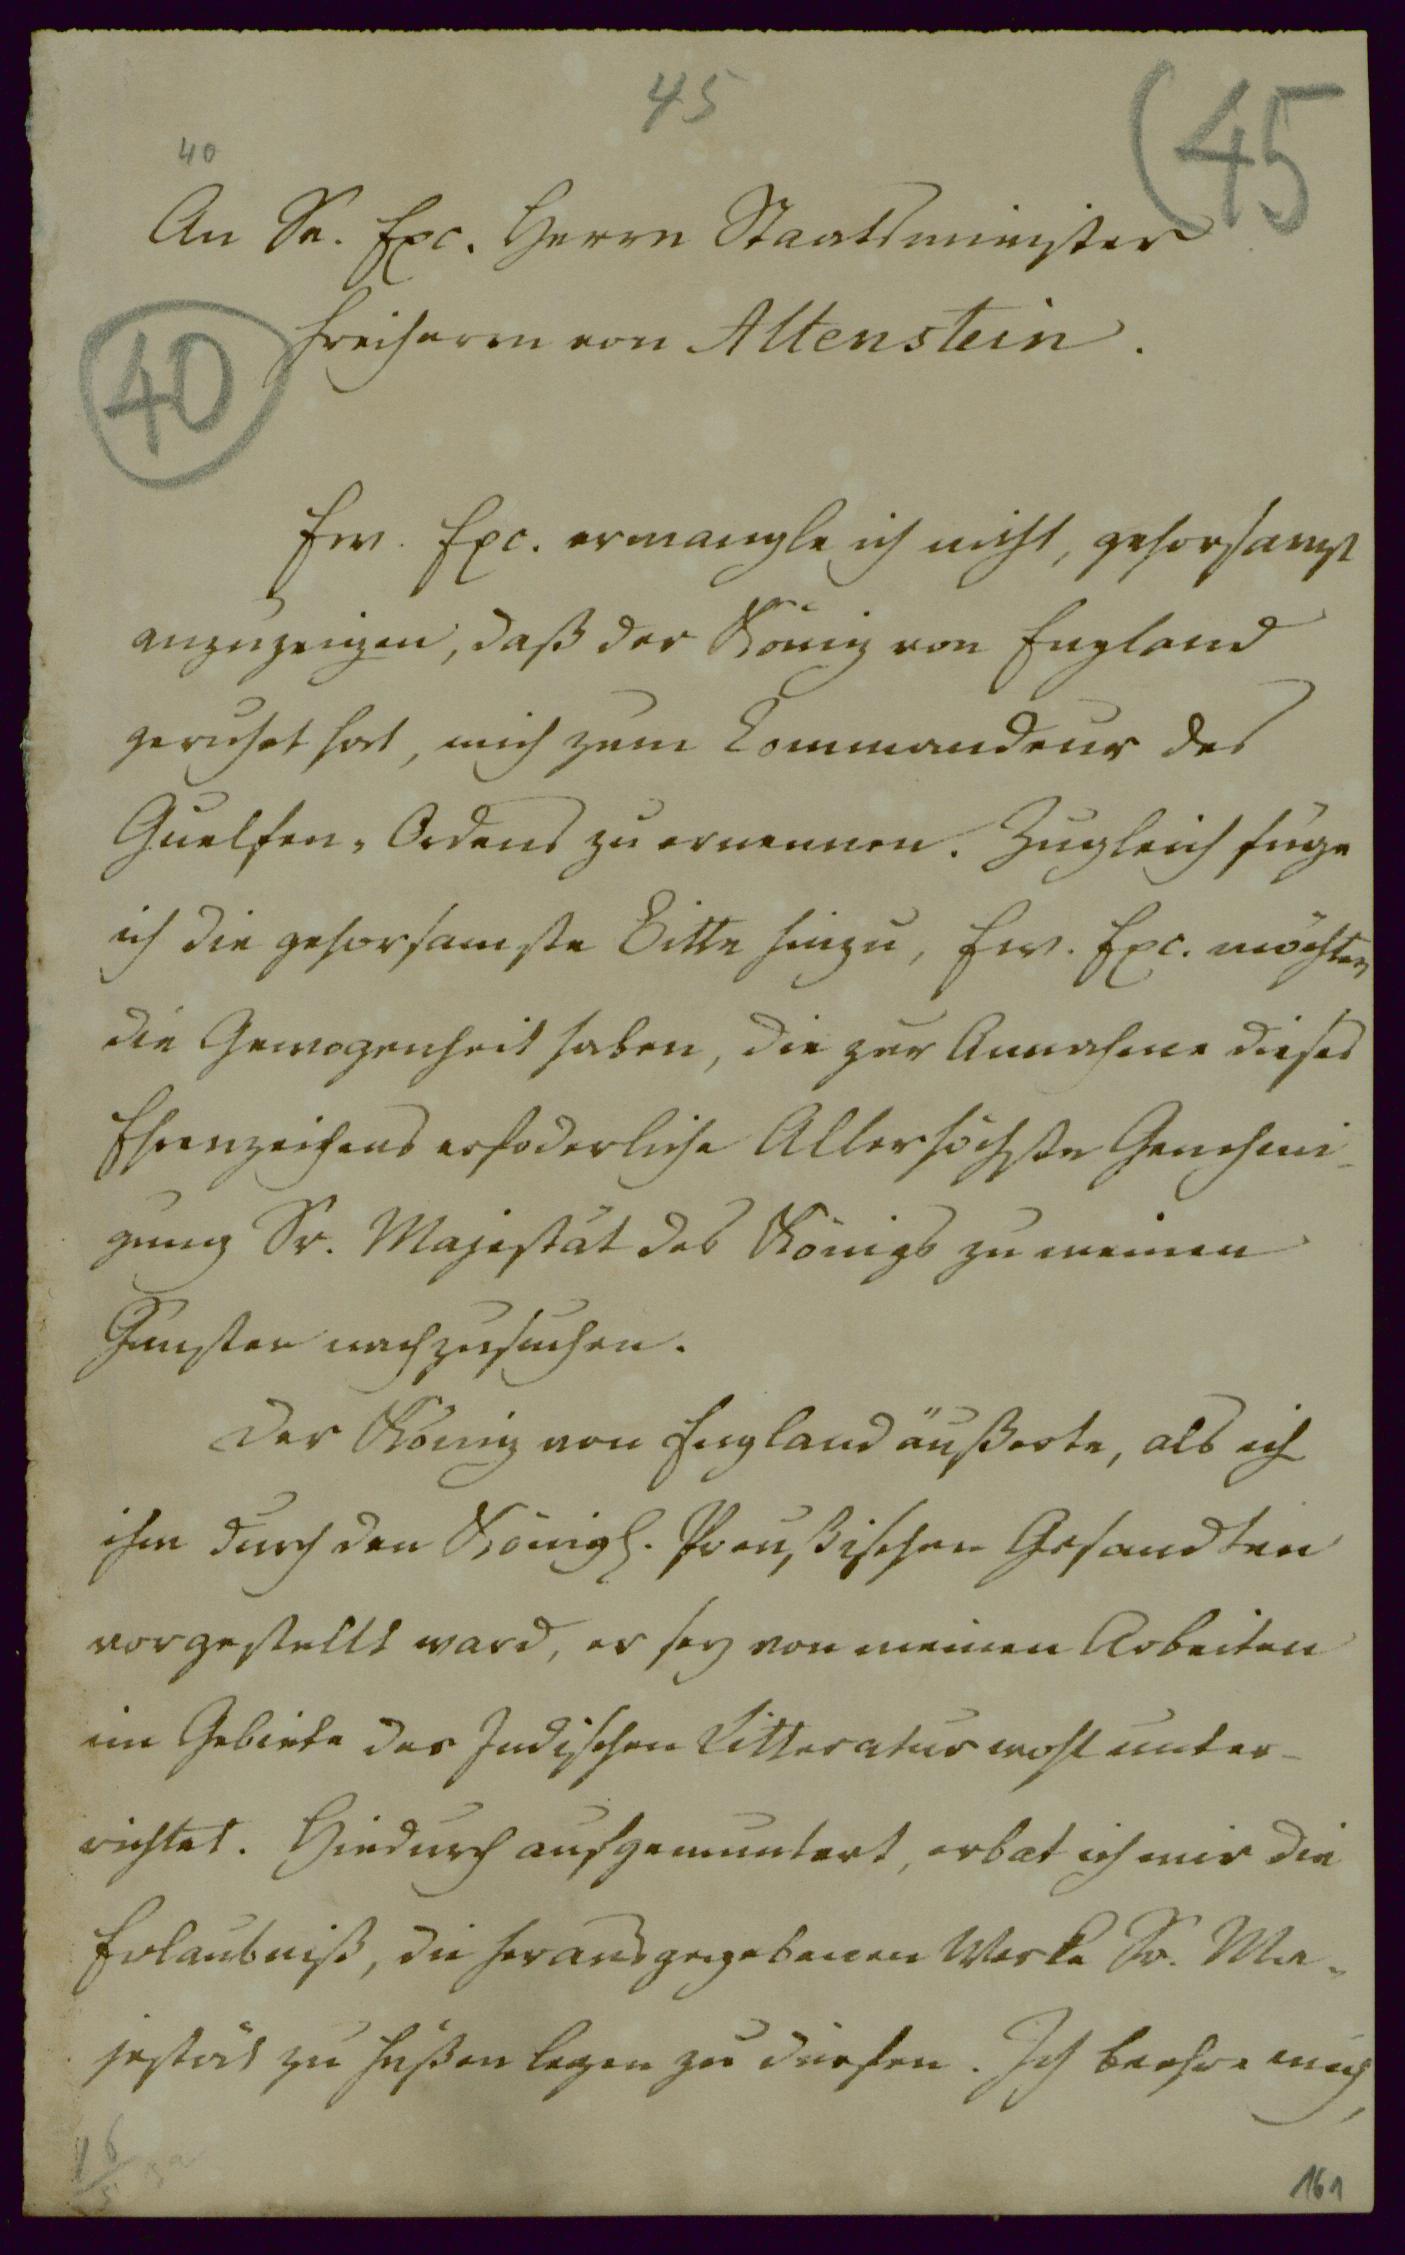 45
(45
40
An Se. Exc. Herrn Staatsminister
Freiherrn von Altenstein.
40
Ew. Exc. ermangle ich nicht, gehorsamst
anzuzeigen, daß der König von England
geruhet hat, mich zum Commandeur des
Guelfen-Ordens zu ernennen. Zugleich füge
ich die gehorsamste Bitte hinzu, Ew. Exc. möchten
die Gewogenheit haben, die zur Annahme dieses
Ehrenzeichens erfoderliche Allerhöchste Genehmi-
gung Sr. Majestät des Königs zu meinen
Gunsten nachzusuchen.
Der König von England äußerte, als ich
ihm durch den Königl. Preußischen Gesandten
vorgestellt ward, er sey von meinen Arbeiten
im Gebiete der Indischen Litteratur wohl unter-
richtet. Hiedurch aufgemuntert, erbat ich mir die
Erlaubniß, die herausgegebenen Werke Sr. Ma-
jestät zu Füßen legen zu dürfen. Ich beehre mich,
161